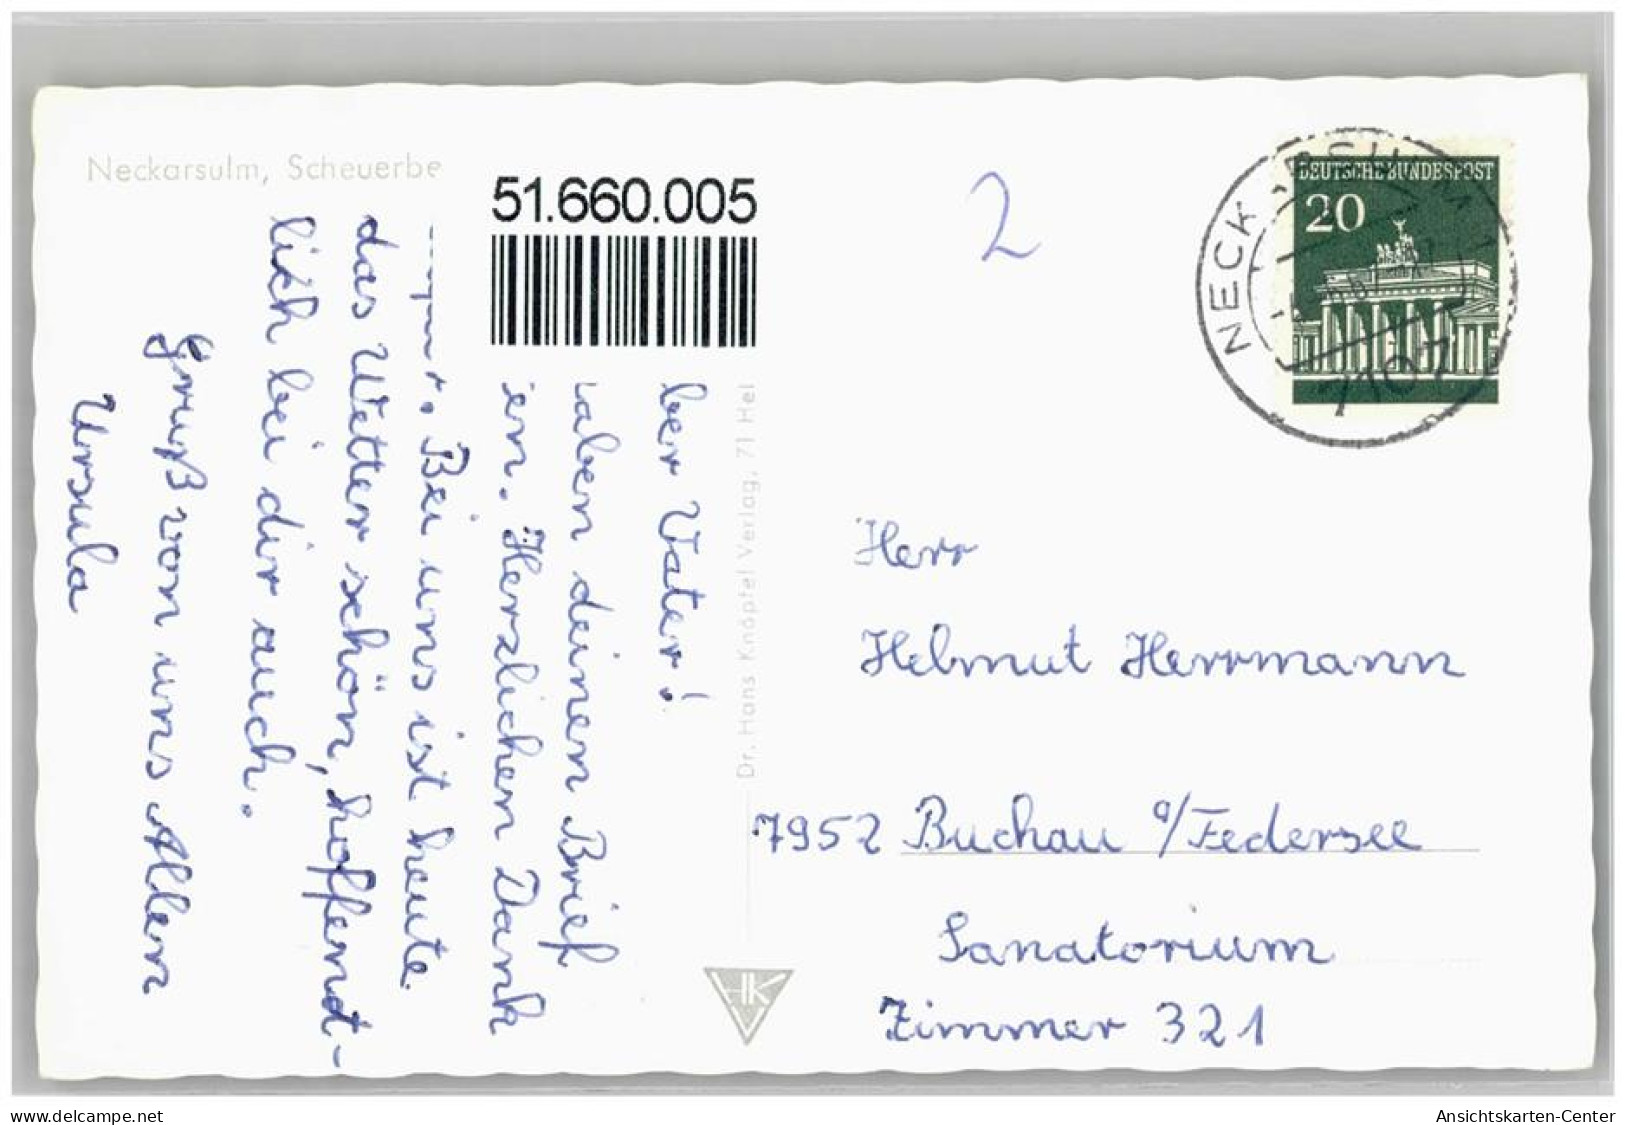 Neckarsulm, Scheuerbe
51.660.005
2
DEUTSCHE BUNDESPOST
20
NECK
7107
ber Vater!
aben deinen Brief
en. Herzlichen Dank
. Bei uns ist heute
das Wetter schön, hoffent-
lich bei dir auch.
Gruß von uns Allen
Ursula
Dr. Hans Knöpfel Verlag, 71 Hei
HK
Herr
Helmut Herrmann
7952 Buchau a/Federsee
Sanatorium
Zimmer 321
delcampe.net
Ansichtskarten-Center